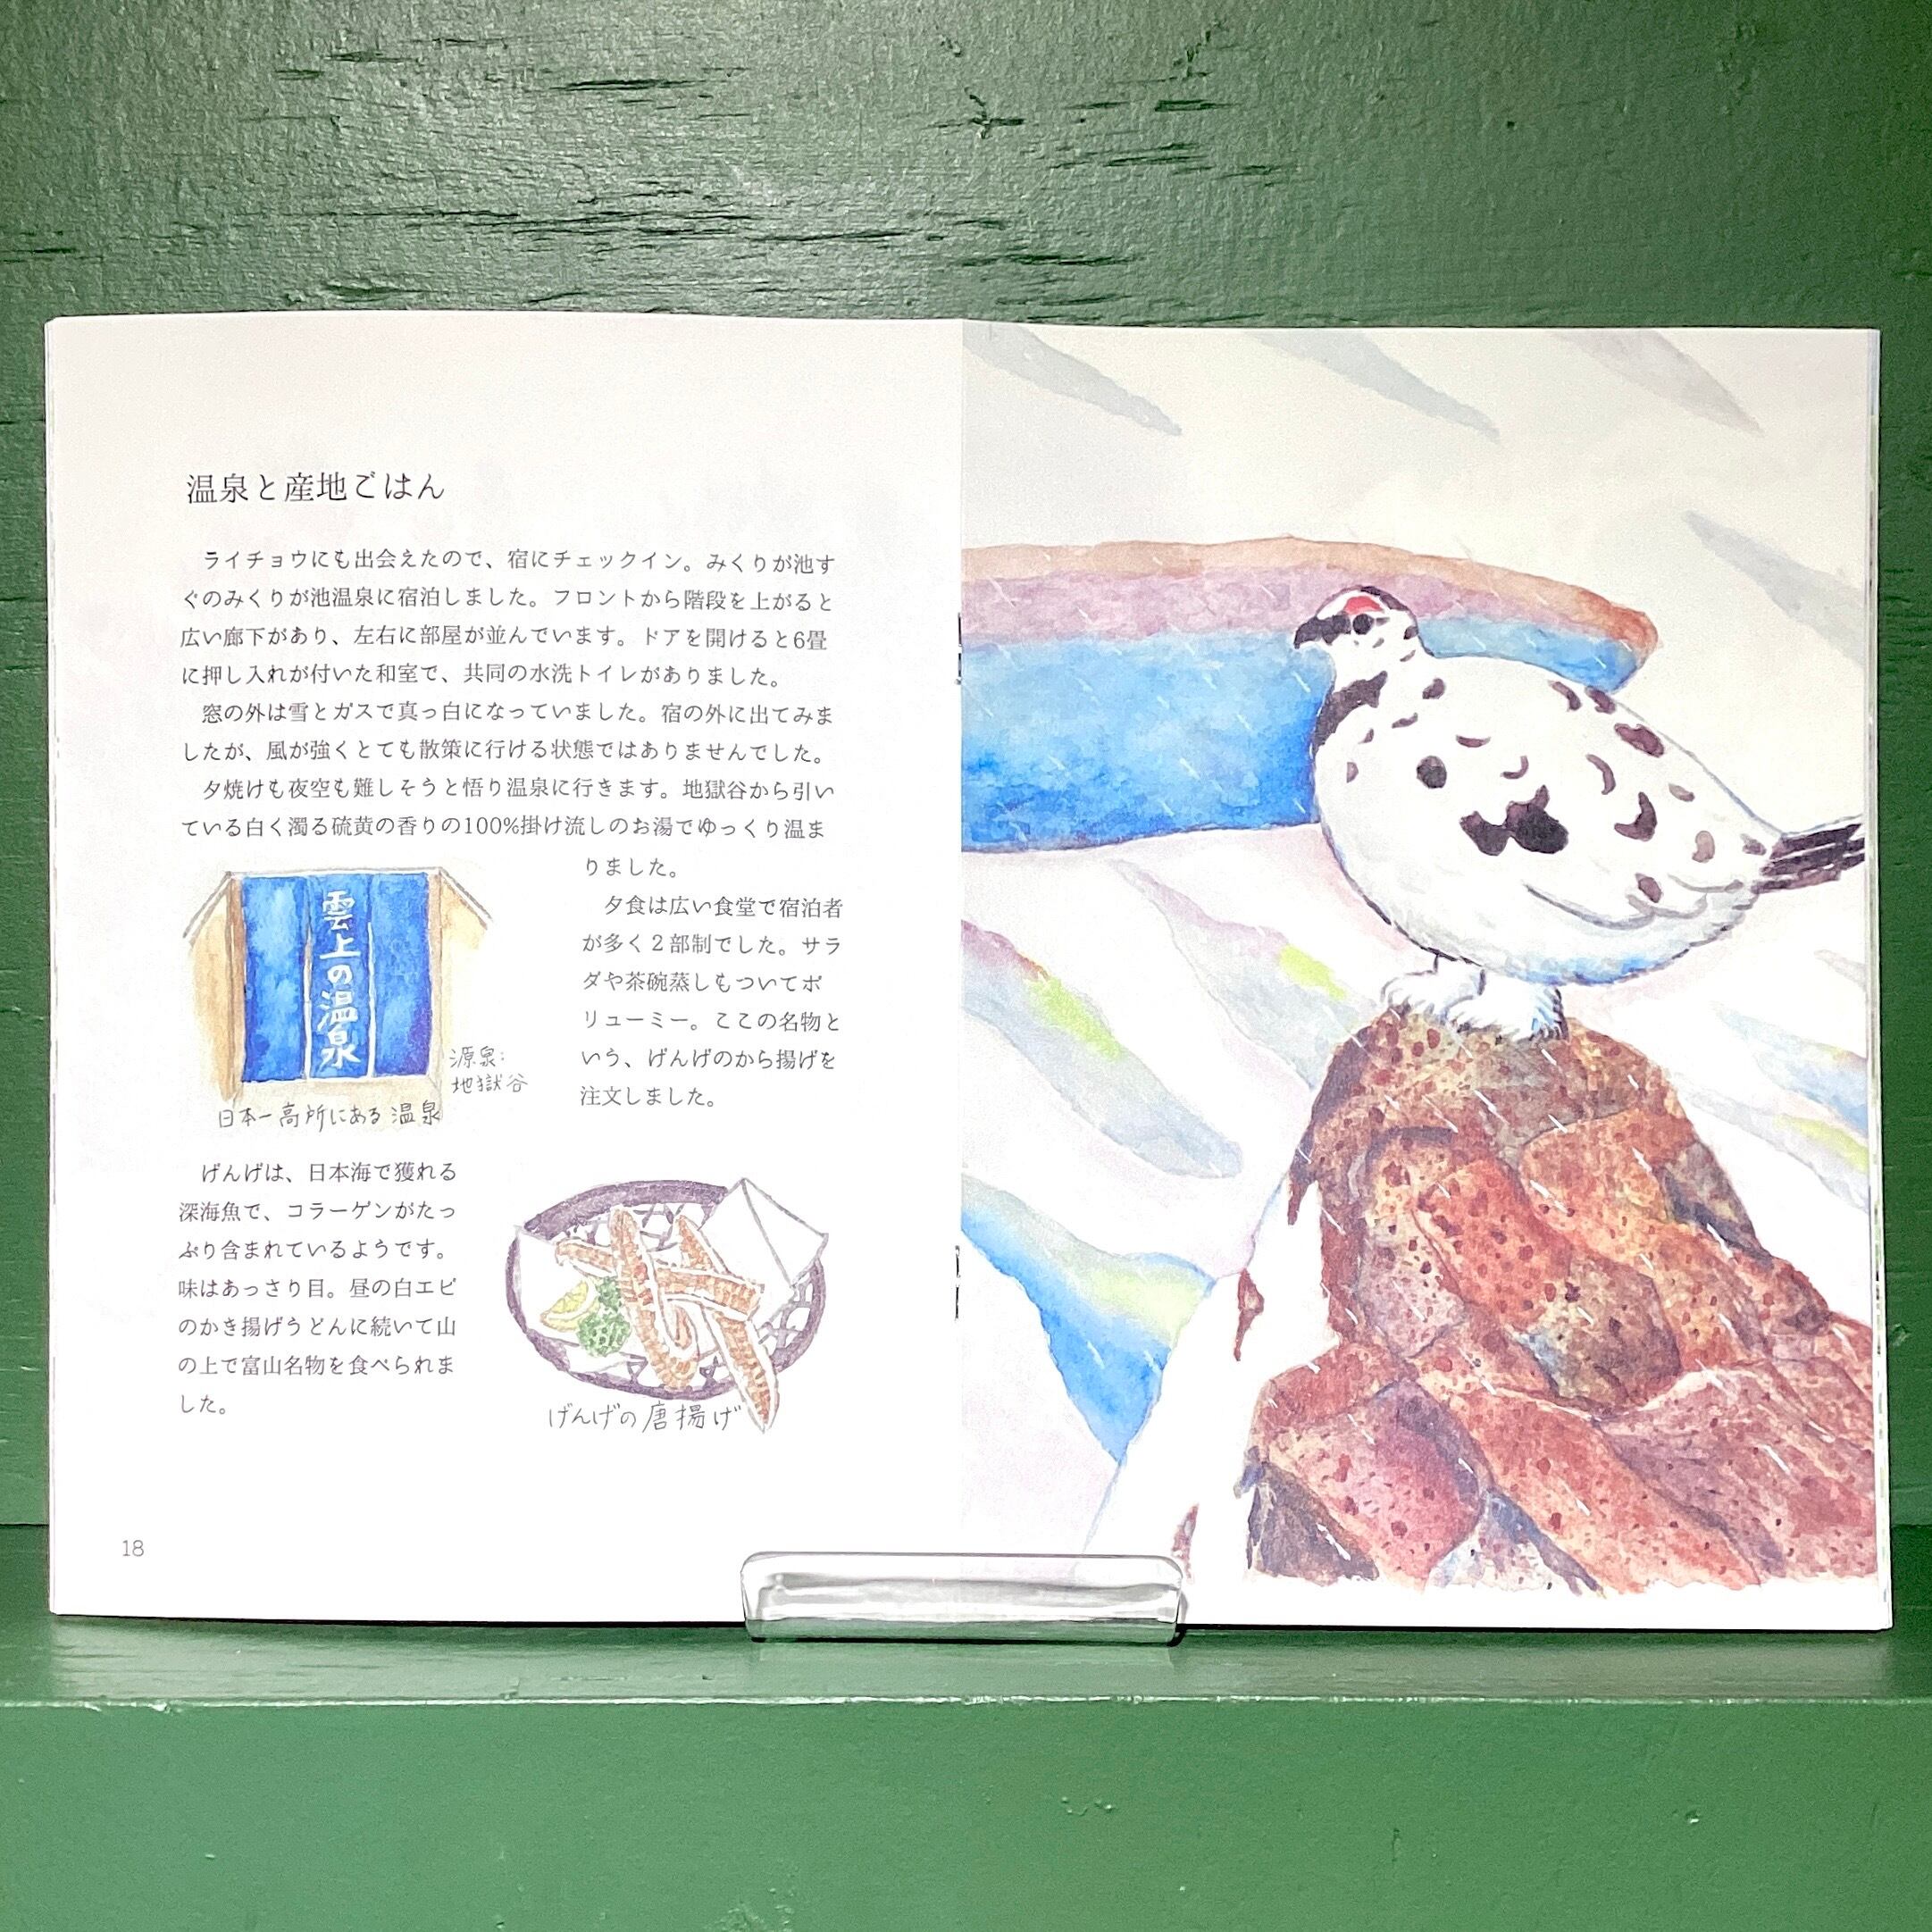 温泉と産地ごはん
ライチョウにも出会えたので、宿にチェックイン。みくりが池す
ぐのみくりが池温泉に宿泊しました。フロントから階段を上がると
広い廊下があり、左右に部屋が並んでいます。ドアを開けると6畳
に押し入れが付いた和室で、共同の水洗トイレがありました。
窓の外は雪とガスで真っ白になっていました。宿の外に出てみま
したが、風が強くとても散策に行ける状態ではありませんでした。
夕焼けも夜空も難しそうと悟り温泉に行きます。地獄谷から引い
ている白く濁る硫黄の香りの100%掛け流しのお湯でゆっくり温ま
りました。
夕食は広い食堂で宿泊者
が多く2部制でした。サラ
ダや茶碗蒸しもついてボ
リューミー。ここの名物と
いう、げんげのから揚げを
注文しました。
雲上の温泉
源泉:
地獄谷
日本一高所にある温泉
げんげは、日本海で獲れる
深海魚で、コラーゲンがたっ
ぷり含まれているようです。
味はあっさり目。昼の白エビ
のかき揚げうどんに続いて山
の上で富山名物を食べられま
した。
げんげの唐揚げ
18